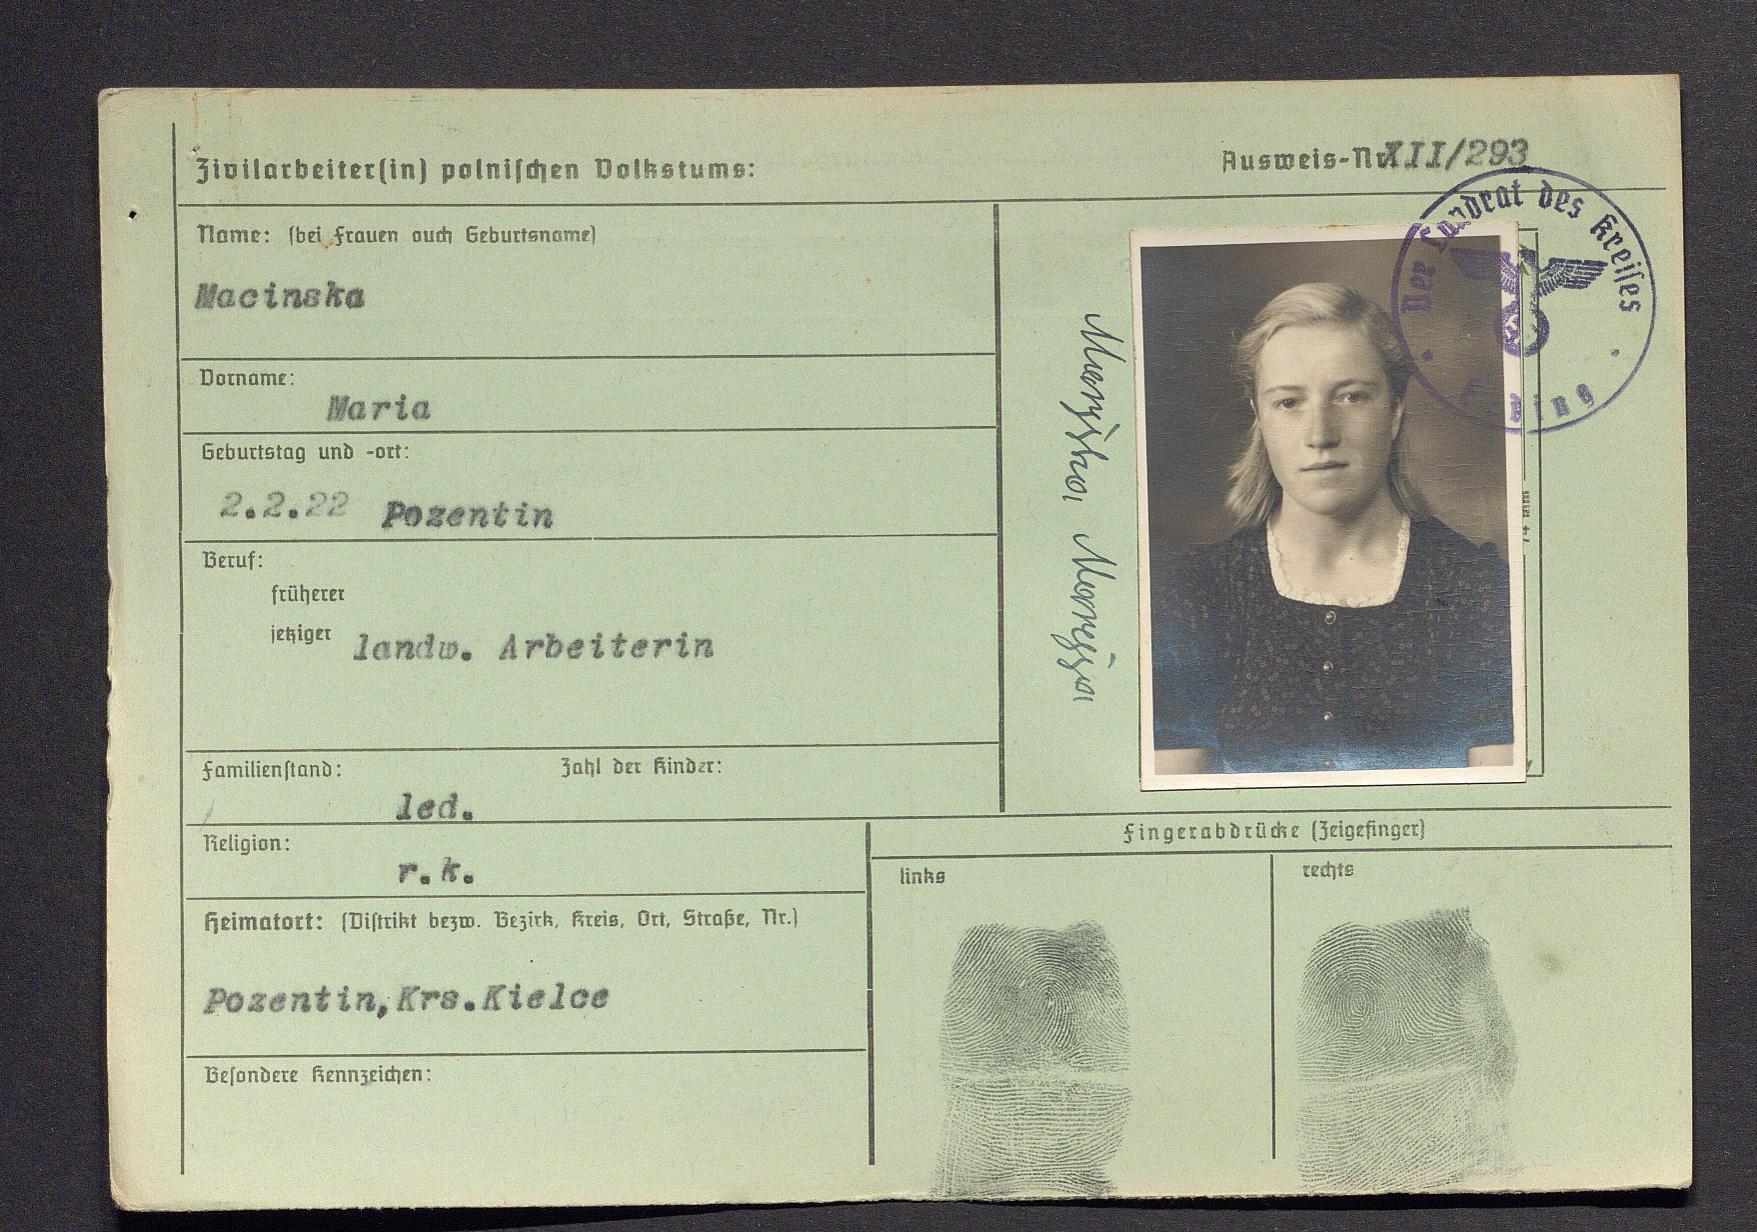 Zivilarbeiter(in) polnischen Volkstums:
Ausweis-Nr XII/293
Name: (bei Frauen auch Geburtsname)
Macinska
Vorname:
Maria
Geburtstag und -ort:
2.2.22 Pozentin
Beruf:
früherer
jetziger landw. Arbeiterin
Familienstand: Zahl der Kinder:
led.
Religion:
r.k.
Heimatort: (Distrikt bezw. Bezirk, Kreis, Ort, Straße, Nr.)
Pozentin, Krs.Kielce
Besondere Kennzeichen:
Der Landrat des Kreises
Fingerabdrücke (Zeigefinger)
links
rechts